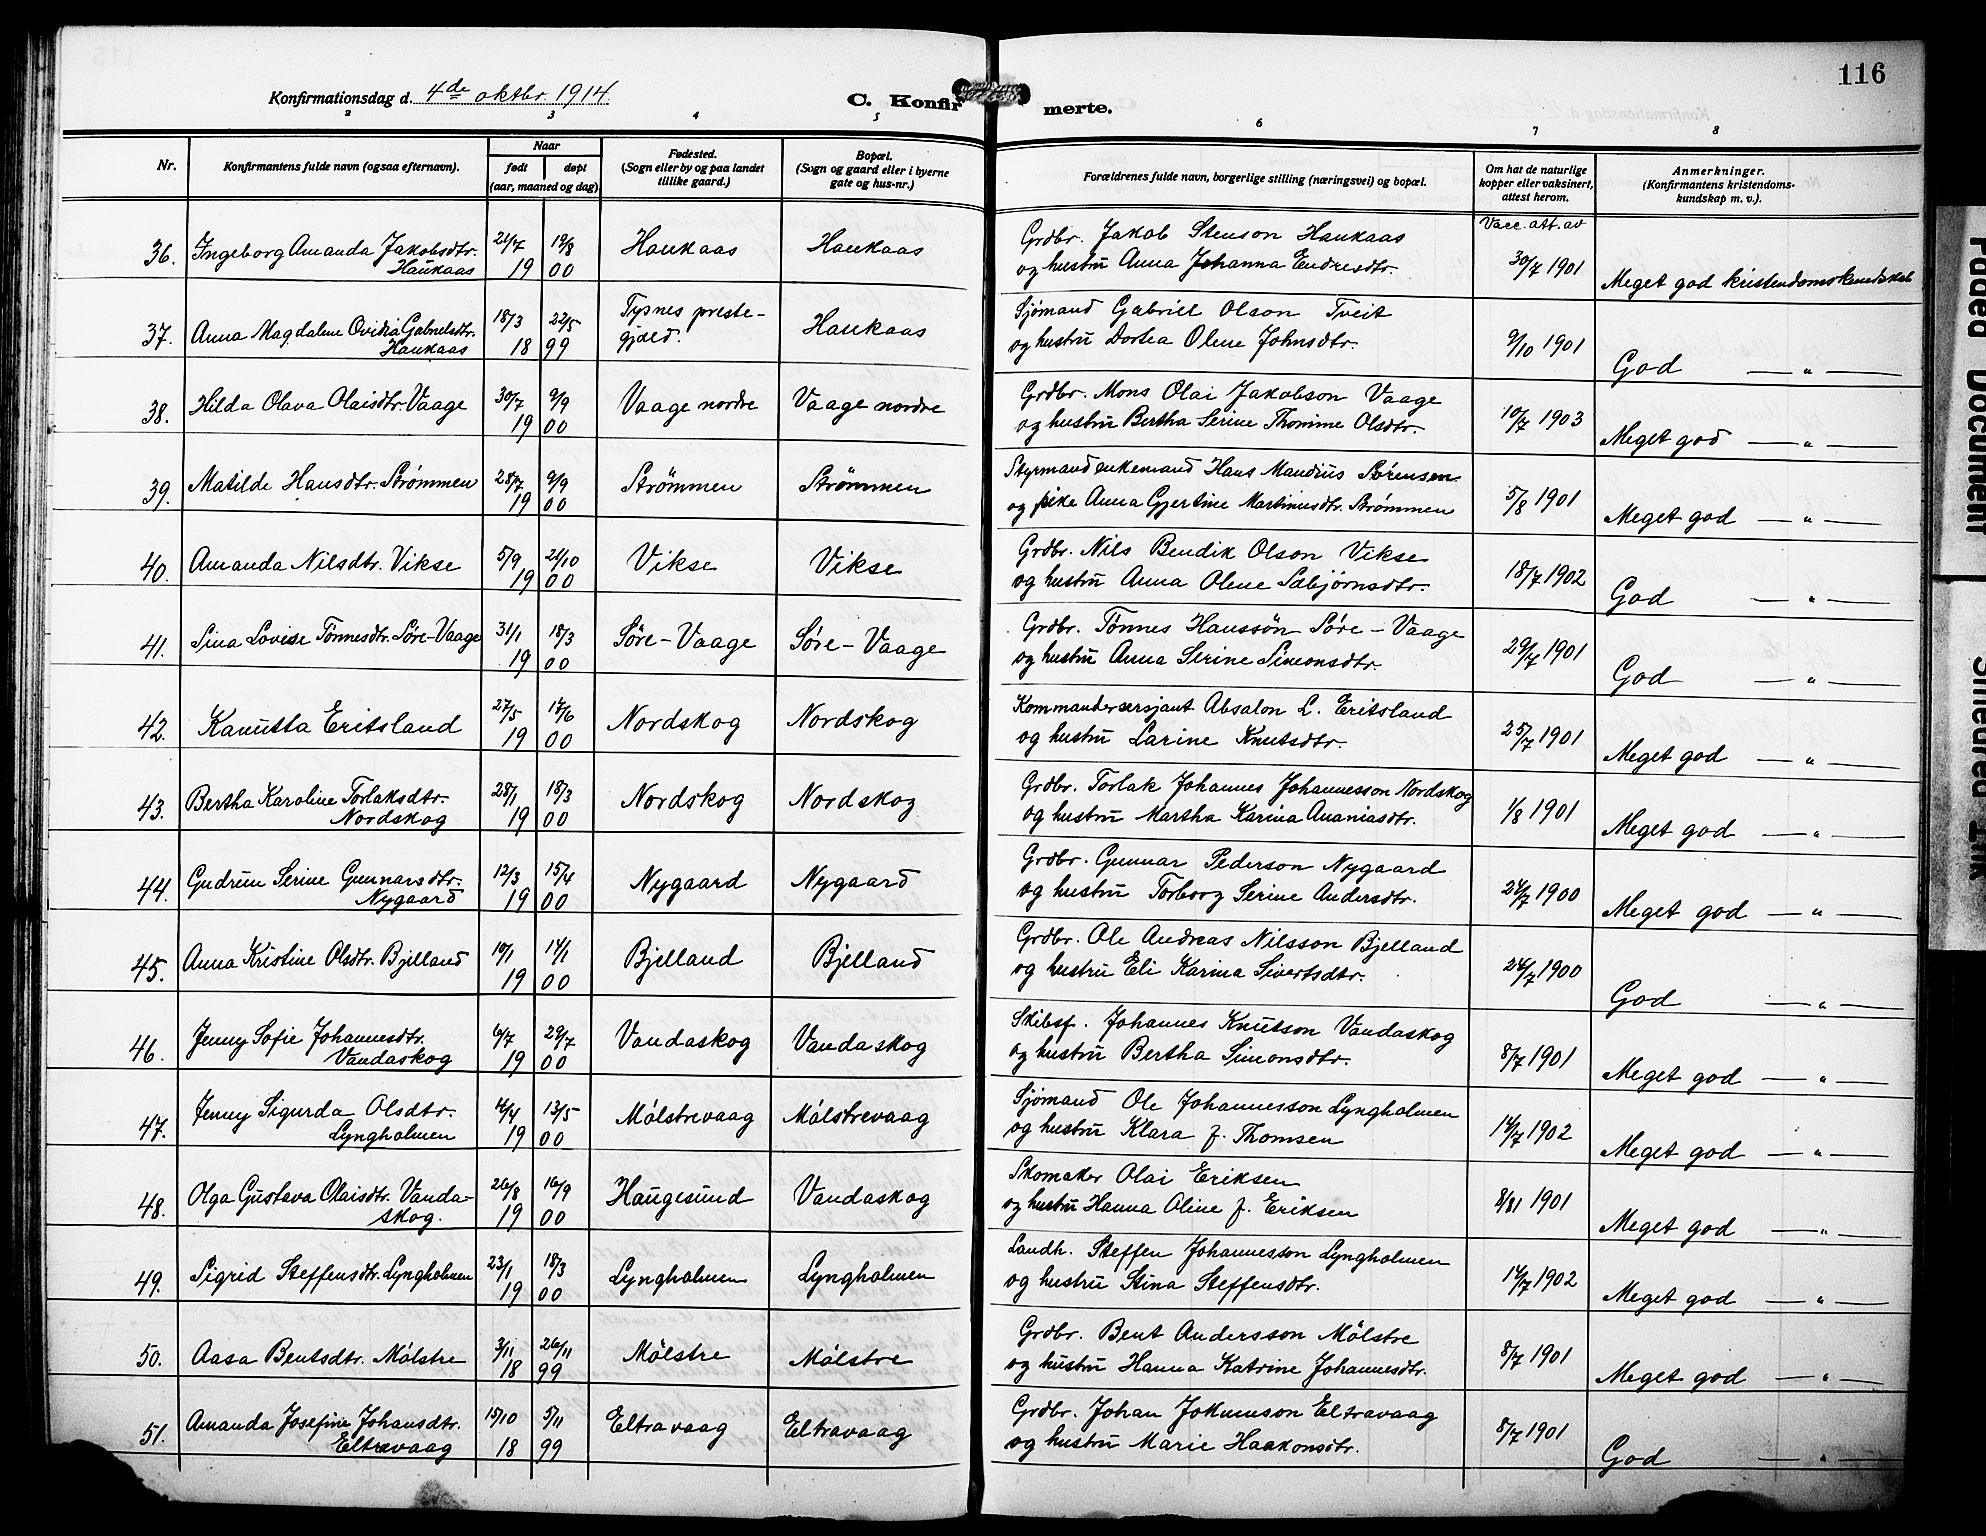 116
Konfirmationsdag d. 4de oktbr. 1914.
C. Konfirmerte.
2 3 4 5 6 7 8
Nr.
Konfirmantens fulde navn (ogsaa efternavn).
Naar
født døpt
(aar, maaned og dag)
Fødested.
(Sogn eller by og paa landet
tillike gaard.)
Bopæl.
(Sogn og gaard eller i byerne
gate og hus-nr.)
Forældrenes fulde navn, borgerlige stilling (næringsvei) og bopæl.
Om hat de naturlige
kopper eller vaksinert,
attest herom.
Anmerkninger.
(Konfirmantens kristendoms-
kundskap m. v.).
Vacc. att. av
36. Ingeborg Amanda Jakobsdtr. 21/7 19/8 Haukaas Haukaas Grdbr. Jakob Stenson Haukaas
Haukaas 19 00 og hustru Anna Johanna Endresdtr. 30/7 1901 Meget god kristendomskundskab
37. Anna Magdalene Ovidia Gabrielsdtr. 18/3 22/5 Tysnes preste- Haukaas Sjømand Gabriel Olson Tveit
Haukaas 18 99 gjæld. og hustru Dortea Olene Johnsdtr. 9/10 1901 God — „ —
38. Hilda Olava Olaisdtr. Vaage 30/7 9/9 Vaage nordre Vaage nordre Grdbr. Mons Olai Jakobson Vaage
19 00 og hustru Bertha Serine Thomine Olsdtr. 10/7 1903 Meget god — „ —
39. Matilde Hansdtr. Strømmen 28/7 9/9 Strømmen Strømmen Styrmand enkemand Hans Mandius Sørensen
19 00 og pike Anna Gjertine Martinusdtr. Strømmen 5/8 1901 Meget god — „ —
40. Amanda Nilsdtr. Vikse 5/9 21/10 Vikse Vikse Grdbr. Nils Bendik Olson Vikse
19 00 og hustru Anna Olene Sæbjørnsdtr. 18/7 1902 God — „ —
41. Sina Lovise Tønnesdtr. Søre-Vaage 31/1 18/3 Søre-Vaage Søre-Vaage Grdbr. Tønnes Hanssön Søre-Vaage
19 00 og hustru Anna Serine Simonsdtr. 29/7 1901 God — „ —
42. Kanutta Eritsland 27/5 17/6 Nordskog Nordskog Kommandersersjant Absalon L. Eritsland
19 00 og hustru Larine Knutsdtr. 25/7 1901 Meget god — „ —
43. Bertha Karoline Torlaksdtr. 28/1 18/3 Nordskog Nordskog Grdbr. Torlak Johannes Johannesson Nordskog
Nordskog 19 00 og hustru Martha Karina Ananiasdtr. 1/8 1901 Meget god — „ —
44. Gudrun Serine Gunnarsdtr. 12/3 15/4 Nygaard Nygaard Grdbr. Gunnar Pederson Nygaard
Nygaard 19 00 og hustru Torborg Serine Andersdtr. 24/7 1900 Meget god — „ —
45. Anna Kristine Olsdtr. Bjelland 10/1 14/1 Bjelland Bjelland Grdbr. Ole Andreas Nilsson Bjelland
19 00 og hustru Eli Karina Sivertsdtr. 24/7 1900 God — „ —
46. Jenny Sofie Johannesdtr. 6/7 29/7 Vandaskog Vandaskog Skibsf. Johannes Knutson Vandaskog
Vandaskog 19 00 og hustru Bertha Simonsdtr. 8/7 1901 Meget god — „ —
47. Jenny Sigurda Olsdtr. 4/4 13/5 Mølstrevaag Mølstrevaag Sjømand Ole Johannesson Lyngholmen
Lyngholmen 19 00 og hustru Klara f. Thomsen 14/7 1902 Meget god — „ —
48. Olga Gustava Olaisdtr. Vanda- 26/8 16/9 Haugesund Vandaskog Skomaker Olai Eriksen
skog. 19 00 og hustru Hanna Oline f. Eriksen 1901 Meget god — „ —
49. Sigrid Steffensdtr. Lyngholmen 23/1 18/3 Lyngholmen Lyngholmen Landh. Steffen Johannesson Lyngholmen
19 00 og hustru Stina Steffensdtr. 14/7 1902 Meget god — „ —
50. Aasa Bentsdtr. Mølstre 3/11 26/11 Mølstre Mølstre Grdbr. Bent Andersson Mølstre
18 99 og hustru Hanna Katrine Johannesdtr. 8/7 1901 Meget god — „ —
51. Amanda Josefine Johansdtr. 15/10 5/11 Eltravaag Eltravaag Grdbr. Johan Jokumson Eltravaag
Eltravaag 18 99 og hustru Marie Haakonsdtr. 8/7 1901 God — „ —
Faded Document
Smeared Ink